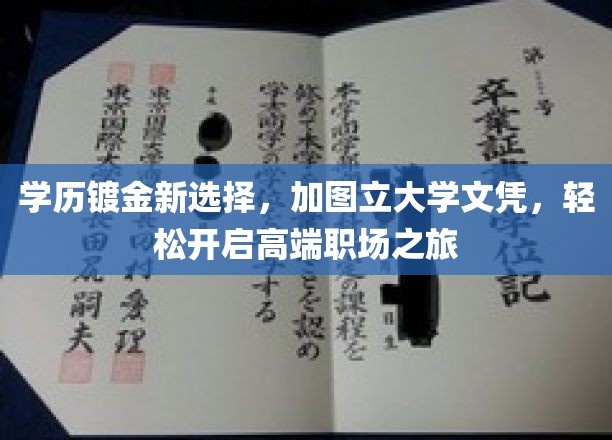 学历镀金新选择，加图立大学文凭，轻
松开启高端职场之旅
第 号
卒業証 位記
本学商学部 定の課程を
修めて本学 ことを認め
学士(商学)の学 する
平成
東京国際大学 村愛理
東京国際大 長田尻嗣夫